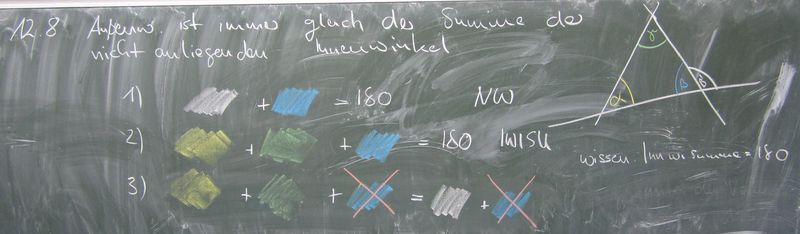 12.8 Außenw. ist immer gleich der Summe der
nicht anliegenden Innenwinkel
1) + = 180 NW
2) + + = 180 IWISU
3) + + = +
γ
α β β
wissen: Innwisumme = 180